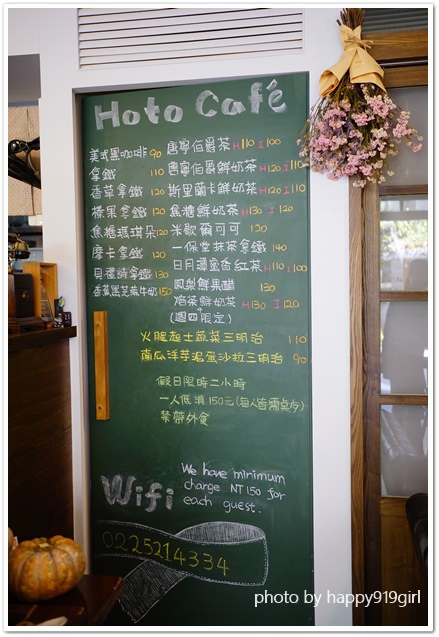 Hoto Café
美式黑咖啡 90
拿鐵 110
香草拿鐵 120
榛果拿鐵 120
焦糖瑪琪朵 120
摩卡拿鐵 120
貝禮詩拿鐵 130
香蕉黑芝麻牛奶 150
唐寧伯爵茶 H110 I100
唐寧伯爵鮮奶茶 H120 I110
斯里蘭卡鮮奶茶 H120 I110
焦糖鮮奶茶 H130 I120
米歇爾可可 130
一保堂抹茶拿鐵 140
日月潭蜜香紅茶 H110 I100
鳳梨鮮果醋 130
焙茶鮮奶茶 H130 I120
(週四限定)
火腿起士蔬菜三明治 110
南瓜洋芋泥蛋沙拉三明治 90
假日限時二小時
一人低消150元(每人皆需桌序)
禁帶外食
Wifi
We have minimum
charge NT 150 for
each guest.
0225214334
photo by happy919girl